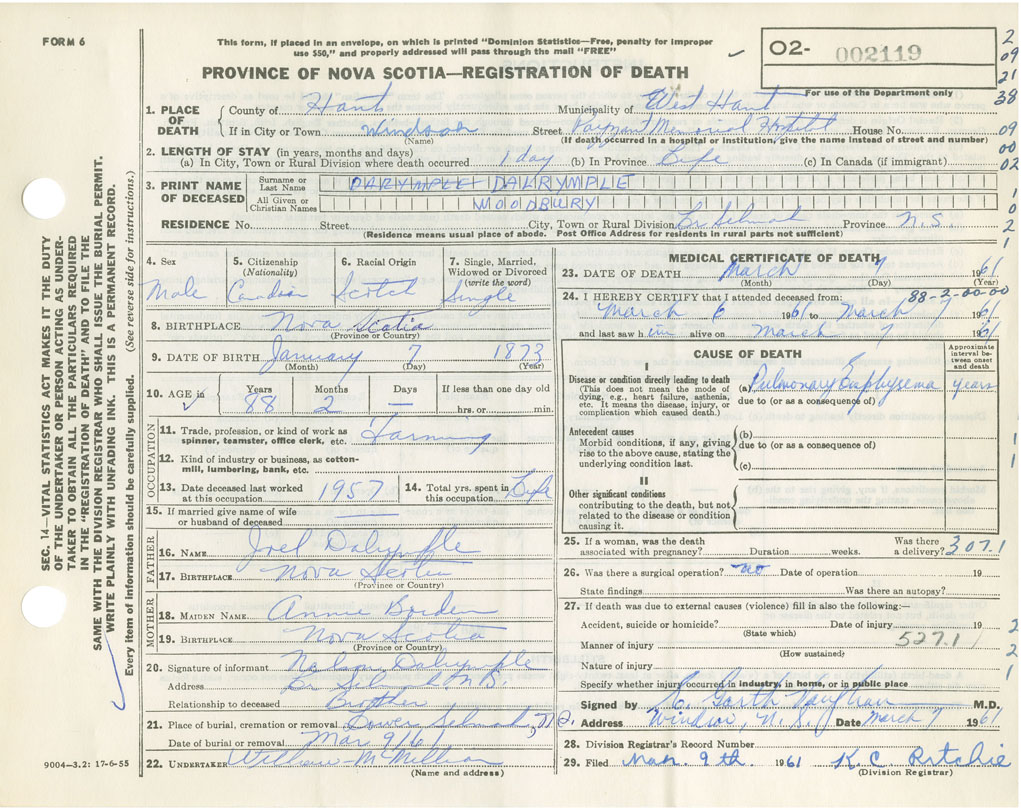 FORM 6
This form, if placed in an envelope, on which is printed "Dominion Statistics—Free, penalty for improper
use $50," and properly addressed will pass through the mail "FREE"
PROVINCE OF NOVA SCOTIA—REGISTRATION OF DEATH
O2- 002119
For use of the Department only
2
09
21
38
09
00
02
1
0
2
1
SEC. 14—VITAL STATISTICS ACT MAKES IT THE DUTY
OF THE UNDERTAKER OR PERSON ACTING AS UNDER-
TAKER TO OBTAIN ALL THE PARTICULARS REQUIRED
IN THE "REGISTRATION OF DEATH" AND TO FILE THE
SAME WITH THE DIVISION REGISTRAR WHO SHALL ISSUE THE BURIAL PERMIT.
WRITE PLAINLY WITH UNFADING INK. THIS IS A PERMANENT RECORD.
Every item of information should be carefully supplied. (See reverse side for instructions.)
1. PLACE OF DEATH
County of Hants Municipality of West Hants
If in City or Town Windsor Street Payzant Memorial Hospital House No.
(Name) (If death occurred in a hospital or institution, give the name instead of street and number)
2. LENGTH OF STAY (in years, months and days)
(a) In City, Town or Rural Division where death occurred 1 day (b) In Province Life (c) In Canada (if immigrant)
3. PRINT NAME OF DECEASED
Surname or Last Name DALRYMPLE
All Given or Christian Names WOODBURY
RESIDENCE No. Street City, Town or Rural Division Br Selmah Province N.S.
(Residence means usual place of abode. Post Office Address for residents in rural parts not sufficient)
4. Sex 5. Citizenship (Nationality) 6. Racial Origin 7. Single, Married, Widowed or Divorced (write the word)
Male Canadian Scotch Single
8. BIRTHPLACE Nova Scotia
(Province or Country)
9. DATE OF BIRTH January 7 1873
(Month) (Day) (Year)
10. AGE in Years Months Days If less than one day old
88 2 — hrs. or min.
OCCUPATION
11. Trade, profession, or kind of work as spinner, teamster, office clerk, etc. Farming
12. Kind of industry or business, as cotton-mill, lumbering, bank, etc.
13. Date deceased last worked at this occupation 1957 14. Total yrs. spent in this occupation Life
15. If married give name of wife or husband of deceased
FATHER
16. NAME Joel Dalrymple
17. BIRTHPLACE Nova Scotia
(Province or Country)
MOTHER
18. MAIDEN NAME Annie Borden
19. BIRTHPLACE Nova Scotia
(Province or Country)
20. Signature of informant Nelson Dalrymple
Address Br Selmah N.S.
Relationship to deceased Brother
21. Place of burial, cremation or removal Lower Selmah, N.S.
Date of burial or removal Mar 9/61
22. UNDERTAKER William McMillan
(Name and address)
9004—3.2: 17-6-55
MEDICAL CERTIFICATE OF DEATH
23. DATE OF DEATH March 7 1961
(Month) (Day) (Year)
88-2-00-00
24. I HEREBY CERTIFY that I attended deceased from:
March 6 1961 to March 7 1961
and last saw him alive on March 7 1961
CAUSE OF DEATH
Approximate interval between onset and death
I
Disease or condition directly leading to death (a) Pulmonary Emphysema years
(This does not mean the mode of dying, e.g., heart failure, asthenia, etc. It means the disease, injury, or complication which caused death.) due to (or as a consequence of)
Antecedent causes (b)
Morbid conditions, if any, giving rise to the above cause, stating the underlying condition last. due to (or as a consequence of)
(c)
1
1
II
Other significant conditions
contributing to the death, but not related to the disease or condition causing it.
25. If a woman, was the death associated with pregnancy? Duration weeks. Was there a delivery? 307.1
26. Was there a surgical operation? no Date of operation 19
State findings Was there an autopsy?
27. If death was due to external causes (violence) fill in also the following:—
Accident, suicide or homicide? Date of injury 19
(State which)
Manner of injury 527.1
(How sustained)
Nature of injury
2
2
1
Specify whether injury occurred in industry, in home, or in public place
Signed by Garth Vaughan M.D.
Address Windsor, N.S. Date March 7 1961
28. Division Registrar's Record Number
29. Filed Mar. 9th. 1961 K. C. Ritchie
(Division Registrar)